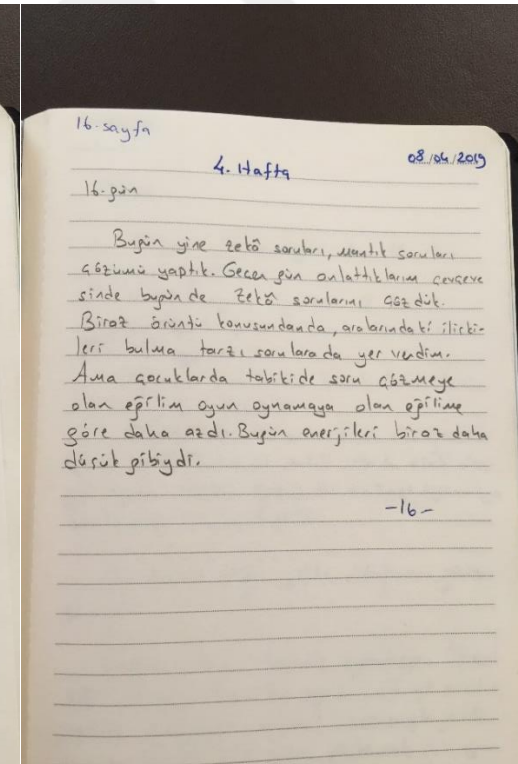 16. sayfa
08/04/2019
4. Hafta
16. gün
Bugün yine zekâ soruları, mantık soruları
çözümü yaptık. Geçen gün anlattıklarım çevçeve
sinde bugün de zekâ sorularını çözdük.
Biraz örüntü konusundanda, aralarındaki ilişki-
leri bulma tarzı sorularada yer verdim.
Ama çocuklarda tabikide soru çözmeye
olan eğilim oyun oynamaya olan eğilime
göre daha azdı. Bugün enerjileri biraz daha
düşük gibiydi.
-16-